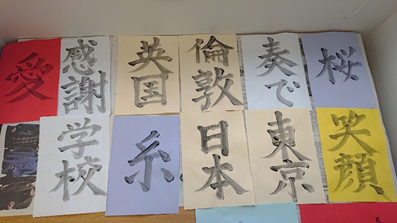 愛
感謝
英国
倫敦
奏で
桜
学校
糸
日本
東京
笑顔